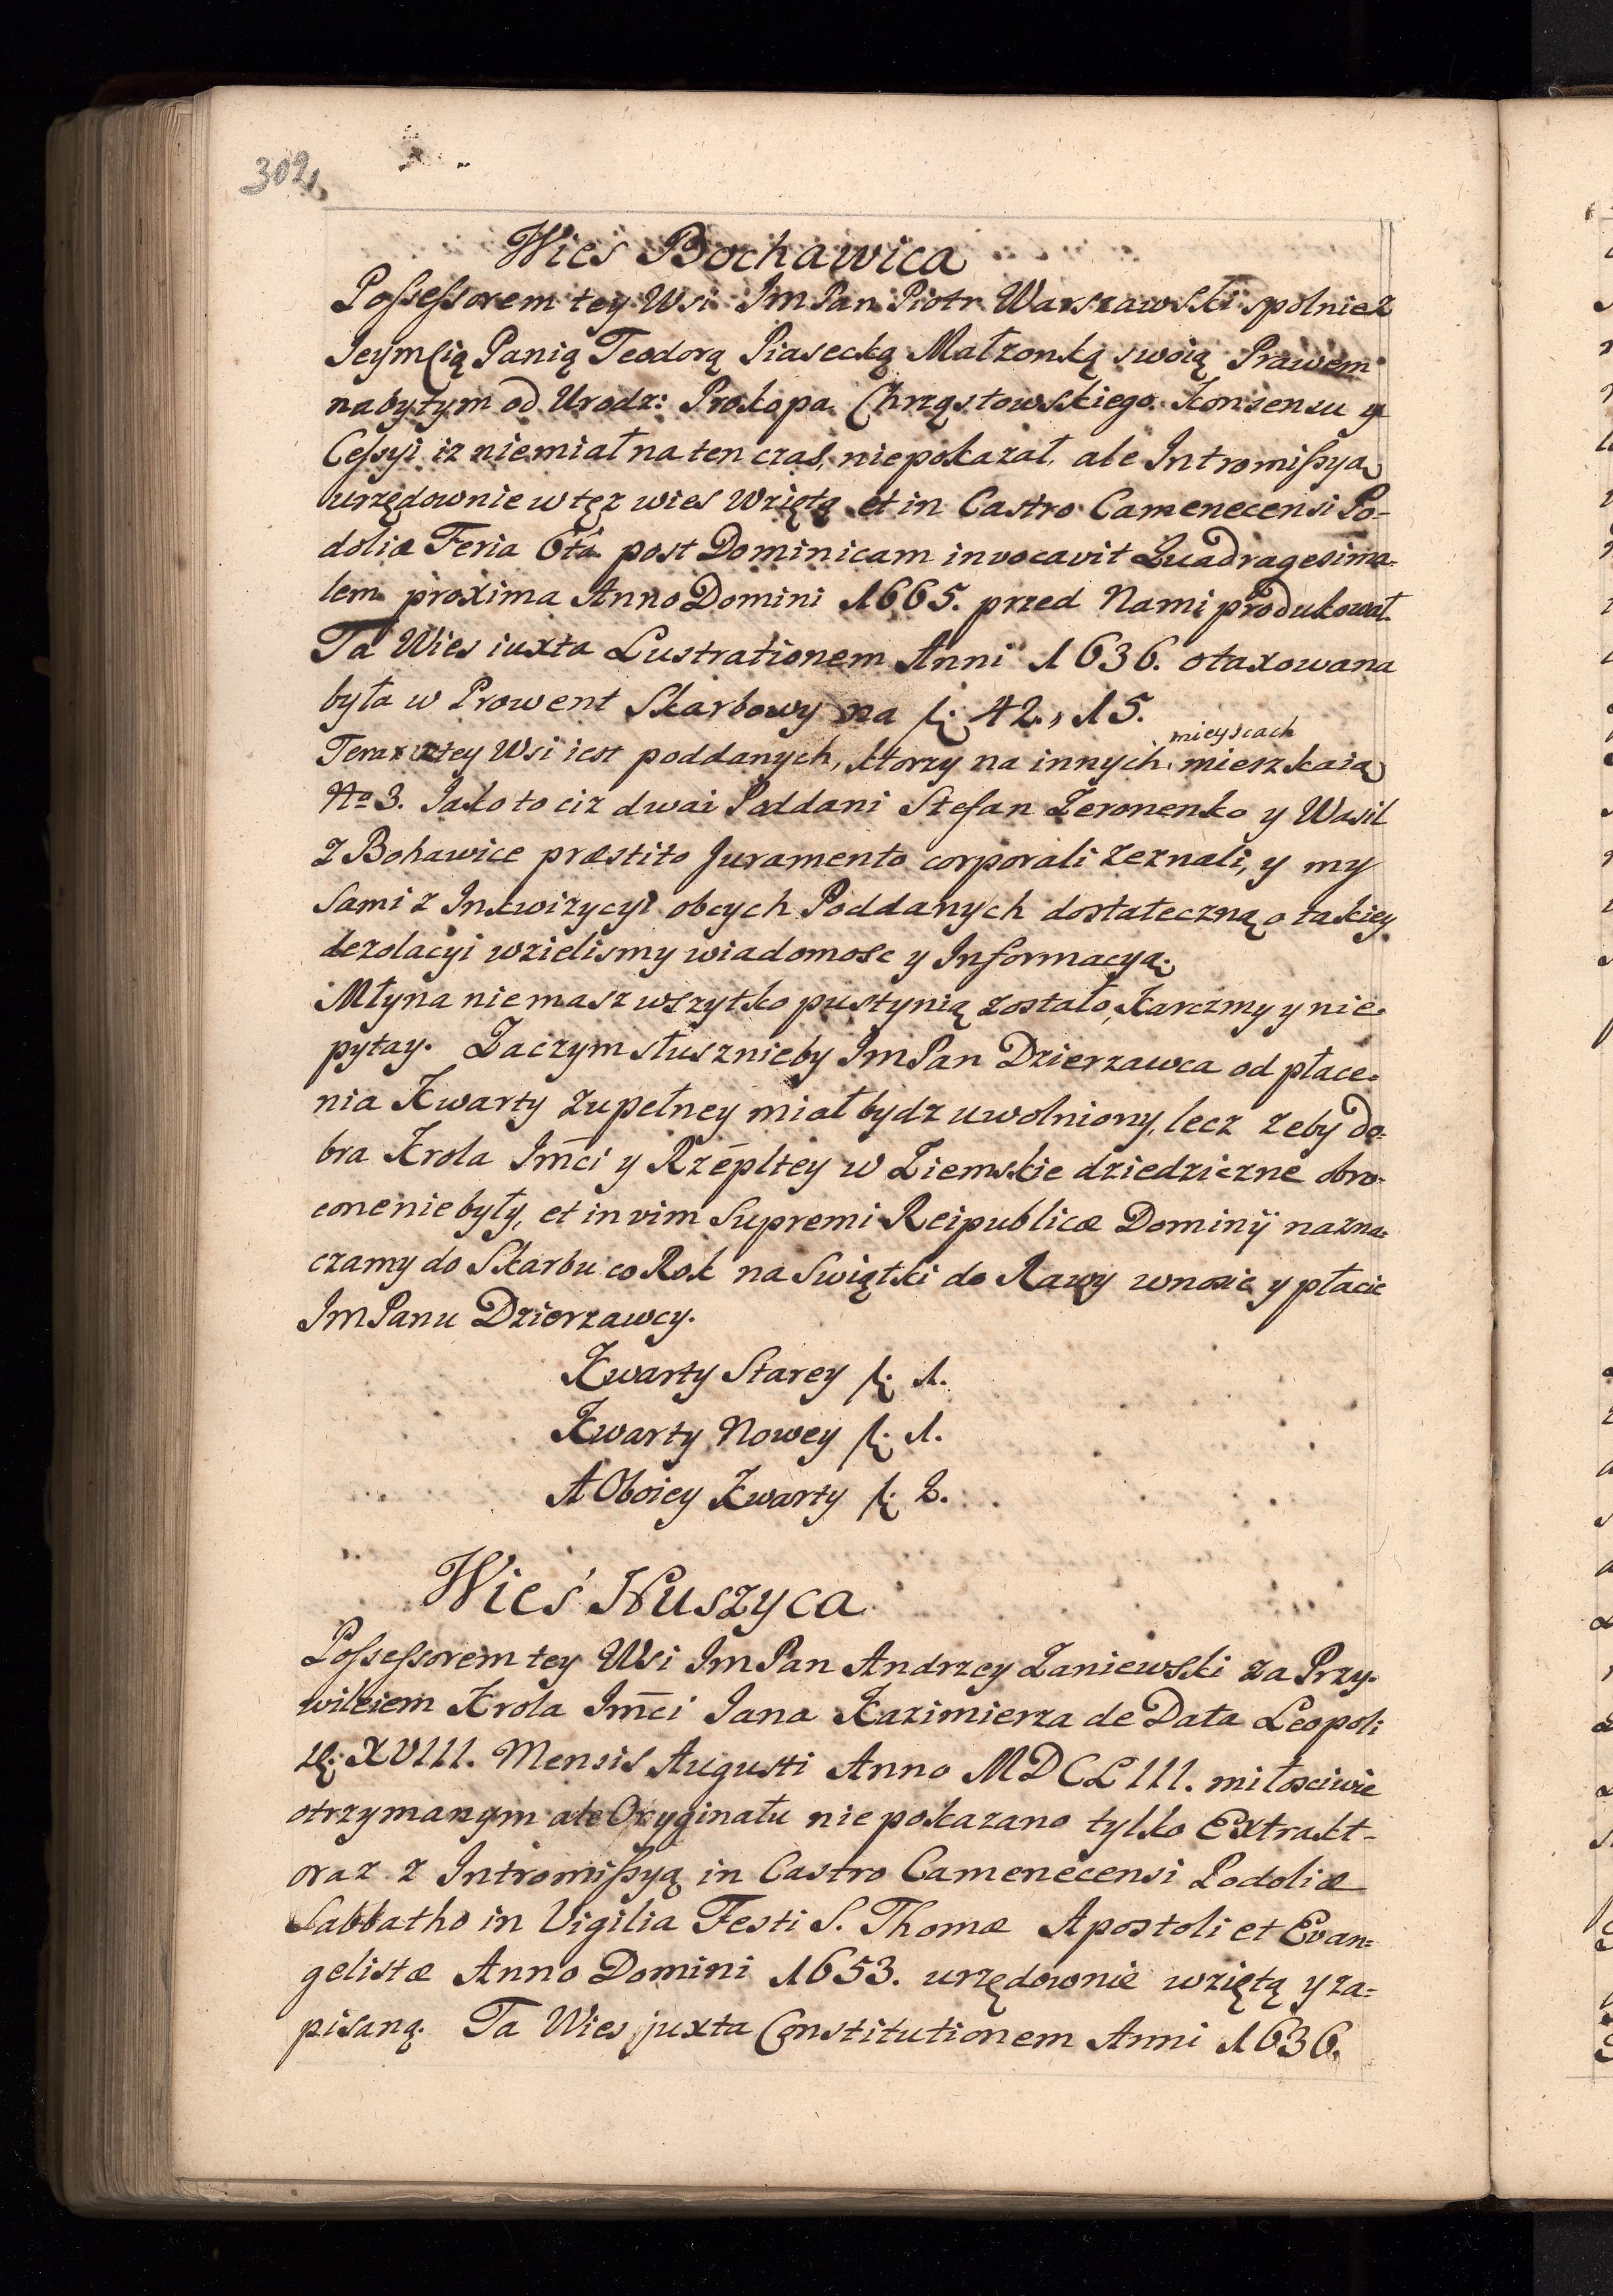 302
Wies Bochawica
Possessorem tey Wsi Im Pan Piotr Warszawski spolnie z
Jeymcią Panią Teodorą Piasecką Małzonką swoią Prawem
nabytym od Urodz: Prokopa Chrząstowskiego. Konsensu y
Cessyi iz niemiał na ten czas, niepokazał, ale Intromissyą
urzędownie w tęz wies wziętą et in Castro Camenecensi Po=
doliæ Feria 6tâ post Dominicam invocavit Quadragesima=
lem proxima Anno Domini 1665. przed Nami produkował.
Ta Wies iuxta Lustrationem Anni 1636. otaxowana
była w Prowent Skarbowy na f: 42., 15.
Teraz w tey Wsi iest poddanych, ktorzy na innych mieyscach mieszkaią
No 3. Jako to ciz dwai Poddani Stefan Zeronenko y Wasil
z Bohawice præstito Juramento corporali zeznali, y my
sami z Inkwizycyi obcych Poddanych dostateczną o takiey
dezolacyi wzielismy wiadomosc y Informacyą.
Młyna niemasz wszytko pustynią zostało, Karczmy y nie
pytay. Zaczym słusznieby Im Pan Dzierzawca od płace=
nia Kwarty zupełney miał bydz uwolniony, lecz zeby Do=
bra Krola Imci y Rzepltey w Ziemskie dziedziczne obro=
cone nie były, et in vim Supremi Reipublicæ Dominij nazna=
czamy do Skarbu co Rok na Swiątki do Rawy wnosic y płacic
Im Panu Dzierzawcy.
Kwarty Starey f: 1.
Kwarty Nowey f: 1.
A Oboiey Kwarty f: 2.
Wieś Huszyca
Possessorem tey Wsi Im Pan Andrzey Laniewski za Przy=
wileiem Krola Imci Jana Kazimierza de Data Leopoli
XVIII. Mensis Augusti Anno MDCLIII. miłosciwie
otrzymanym ale Oryginału nie pokazano tylko Extrakt=
oraz z Intromissyą in Castro Camenecensi Podoliæ
Sabbatho in Vigilia Festi S. Thomæ Apostoli et Evan=
gelistæ Anno Domini 1653. urzędownie wziętą y za=
pisaną. Ta Wies juxta Constitutionem Anni 1636.